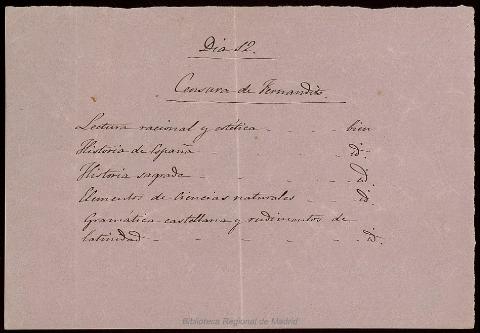 Dia 12.
Censura de Fernandito.
Lectura racional y estética - - - bien
Historia de España - - - - id.
Historia sagrada - - - - id.
Elementos de ciencias naturales - - - id.
Gramática castellana y rudimentos de
latinidad - - - - - - id.
Biblioteca Regional de Madrid